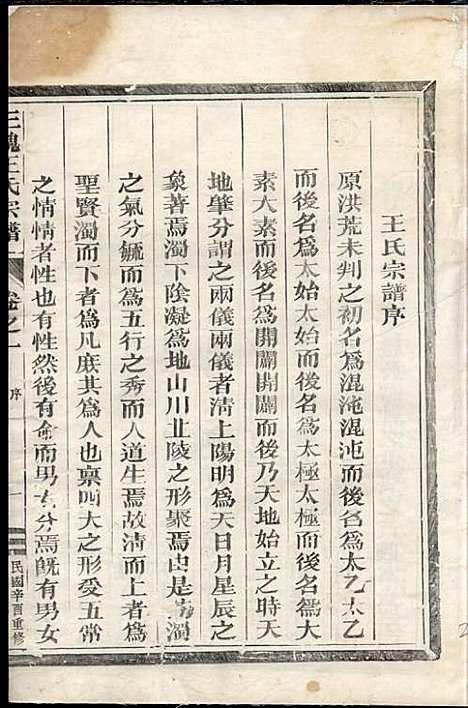 王氏宗譜序
原洪荒未判之初名爲混沌混沌而後名爲太乙太乙
而後名爲太始太始而後名爲太極太極而後名爲大
素大素而後名爲開闢開闢而後乃天地始立之時天
地肇分謂之兩儀兩儀者淸上陽明爲天日月星辰之
象著焉濁下陰凝爲地山川丘陵之形聚焉由是淸濁
之氣分毓而爲五行之秀而人道生焉故淸而上者爲
聖賢濁而下者爲凡庶其爲人也稟四大之形受五常
之情情者性也有性然後有命而男女分焉旣有男女
三槐王氏宗譜
卷之一
序
一
民國辛酉重修